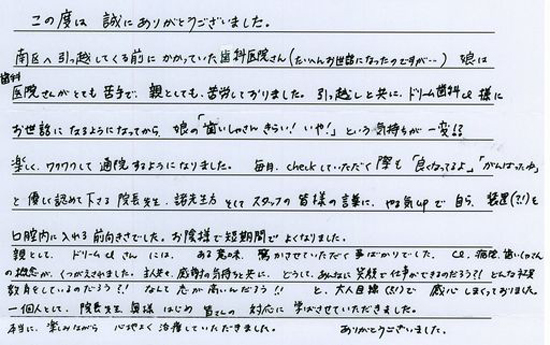 この度は 誠にありがとうございました。
南区へ引っ越してくる前にかかっていた歯科医院さん(たいへんお世話になったのですが…) 娘は
歯科
医院さんがとても苦手で、親としても、苦労しておりました。引っ越しと共に、ドリーム歯科cl様に
お世話になるようになってから、娘の「歯いしゃさんきらい!いや!」という気持ちが一変し
楽しく、ワクワクして通院するようになりました。 毎月、checkしていただく際も「良くなってるよ」「がんばったね」
と優しく認めて下さる院長先生、諸先生方そしてスタッフの皆様の言葉に、やる気upで自ら、装置(?!)を
口腔内に入れる前向きさでした。お陰様で短期間でよくなりました。
親として、ドリームclさんには、ある意味、驚かさせていただく事ばかりでした。cl、病院、歯いしゃさん
の概念が、くつがえされました。主人共々、感謝の気持ちと共に、どうして、あんなに笑顔で仕事ができるのだろう?!どんな社員
教育をしているのだろう?! なんて志が高いんだろう!! と、大人目線(?!)で感心しまくっておりました。
一個人として、院長先生、奥様はじめ皆さんの対応に学ばさせていただきました。
本当に、楽しみながら 心地よく治療していただきました。 ありがとうございました。